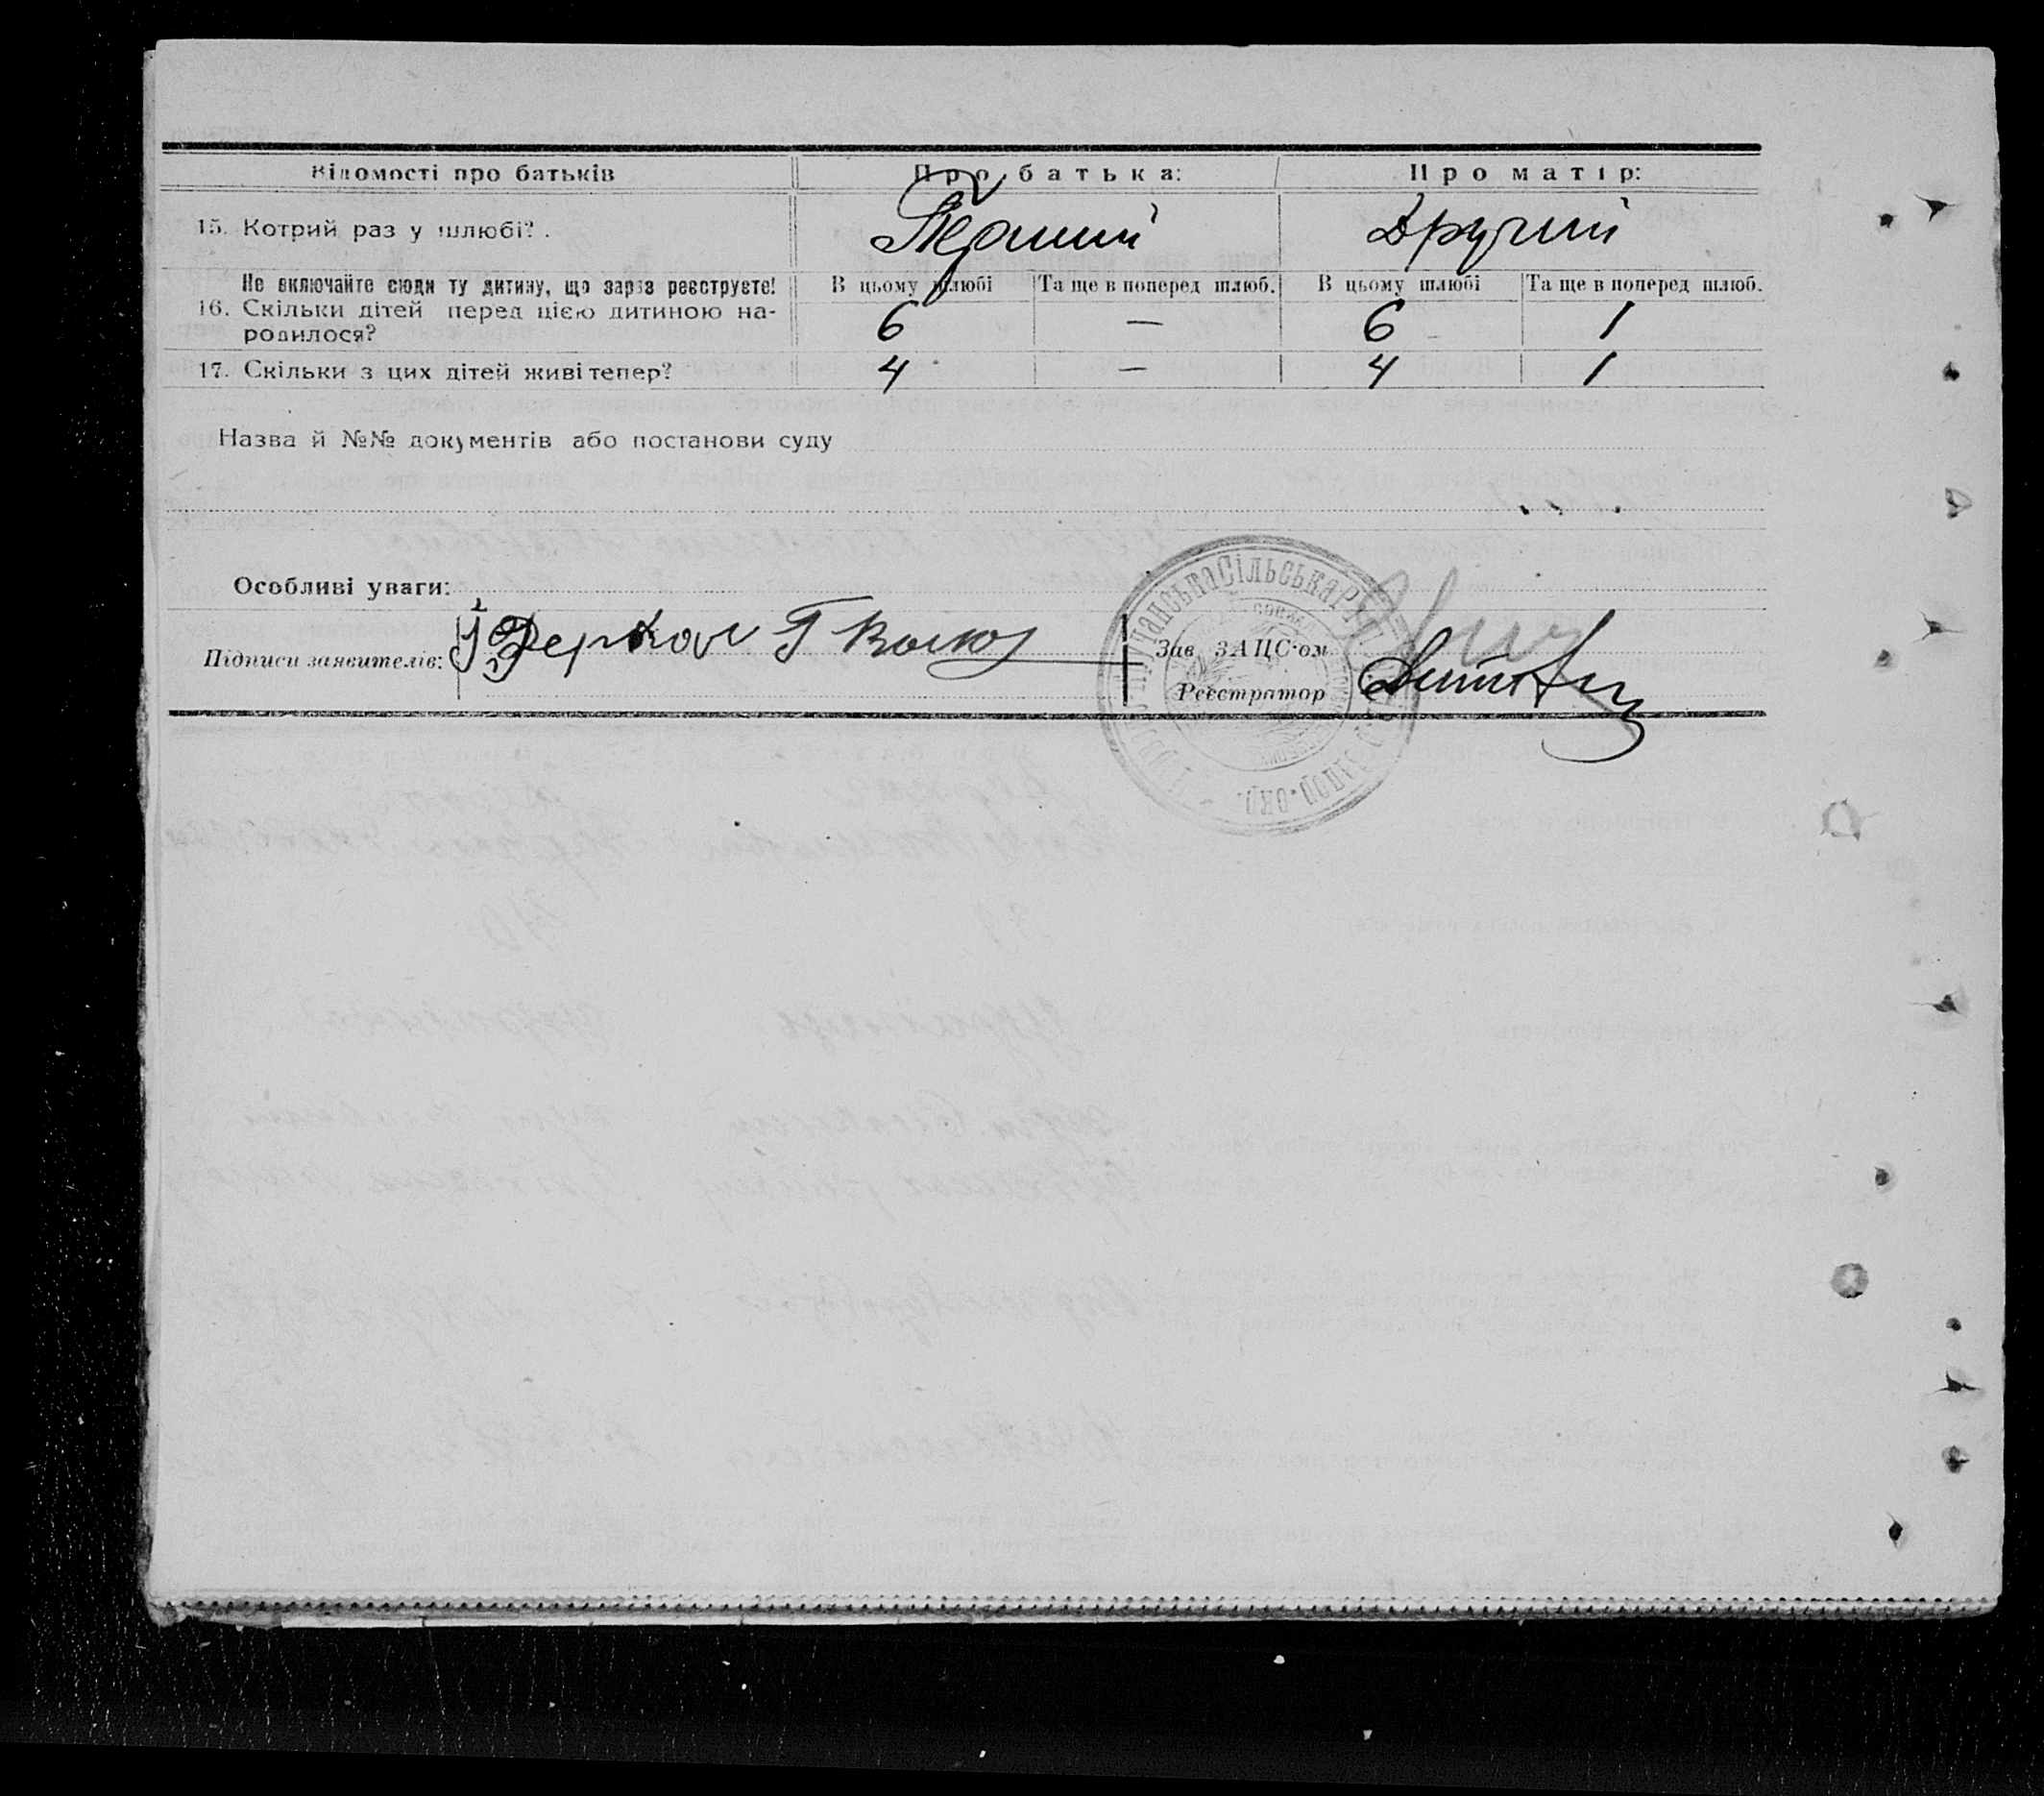 Відомості про батьків Про батька: Про матір:
15. Котрий раз у шлюбі? . Перший Другий
Не включайте сюди ту дитину, що зараз реєструєте! В цьому шлюбі Та ще в поперед шлюб. В цьому шлюбі Та ще в поперед шлюб.
16. Скільки дітей перед цією дитиною на-
родилося? 6 — 6 1
17. Скільки з цих дітей живі тепер? 4 — 4 1
Назва й №№ документів або постанови суду
Особливі уваги:
Підписи заявителів: Деркач
Зав. ЗАЦС·ом
Реєстратор
Сільська